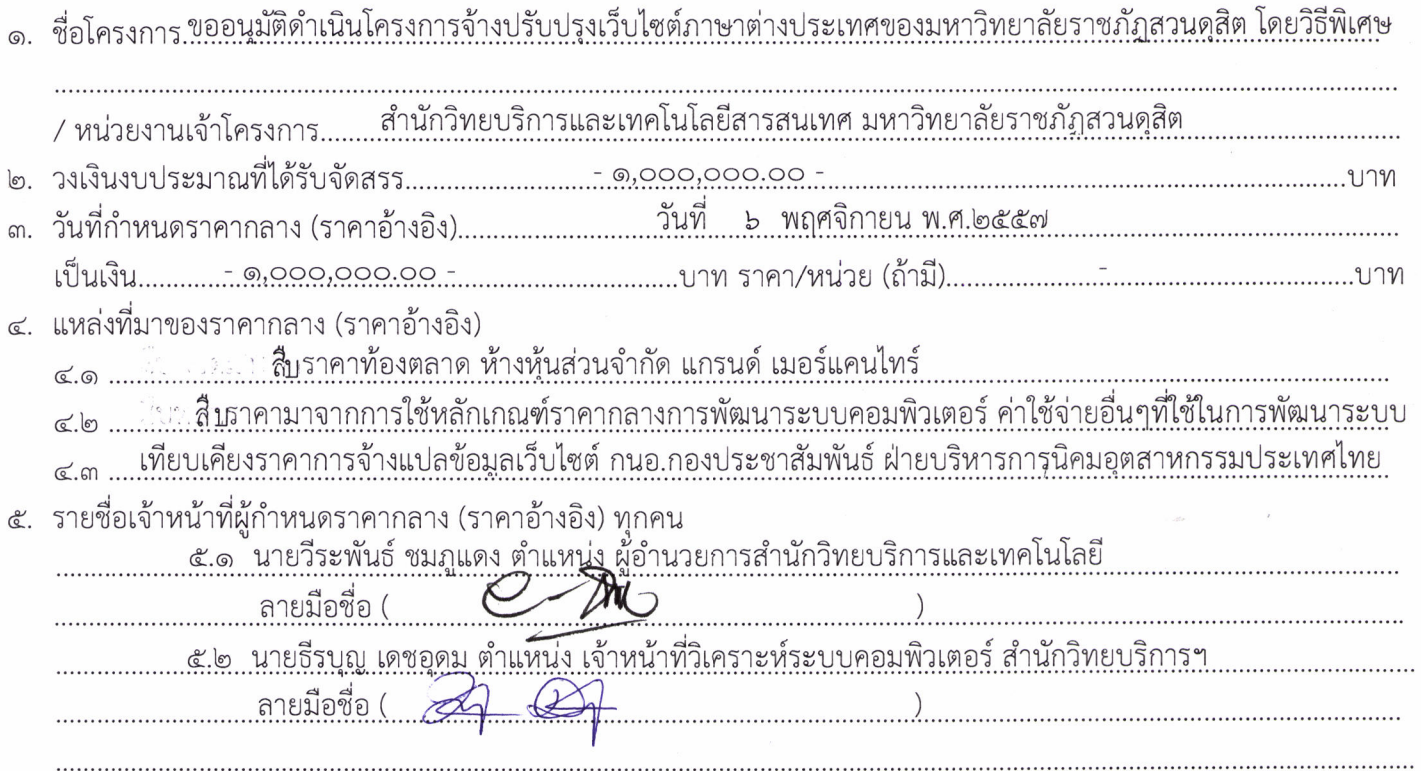 ๑. ชื่อโครงการ ขออนุมัติดำเนินโครงการจ้างปรับปรุงเว็บไซต์ภาษาต่างประเทศของมหาวิทยาลัยราชภัฏสวนดุสิต โดยวิธีพิเศษ
/ หน่วยงานเจ้าโครงการ สำนักวิทยบริการและเทคโนโลยีสารสนเทศ มหาวิทยาลัยราชภัฏสวนดุสิต
๒. วงเงินงบประมาณที่ได้รับจัดสรร - ๑,๐๐๐,๐๐๐.๐๐ - บาท
๓. วันที่กำหนดราคากลาง (ราคาอ้างอิง) วันที่ ๖ พฤศจิกายน พ.ศ.๒๕๕๗
เป็นเงิน - ๑,๐๐๐,๐๐๐.๐๐ - บาท ราคา/หน่วย (ถ้ามี) - บาท
๔. แหล่งที่มาของราคากลาง (ราคาอ้างอิง)
๔.๑ สืบราคาท้องตลาด ห้างหุ้นส่วนจำกัด แกรนด์ เมอร์แคนไทร์
๔.๒ สืบราคามาจากการใช้หลักเกณฑ์ราคากลางการพัฒนาระบบคอมพิวเตอร์ ค่าใช้จ่ายอื่นๆที่ใช้ในการพัฒนาระบบ
๔.๓ เทียบเคียงราคาการจ้างแปลข้อมูลเว็บไซต์ กนอ.กองประชาสัมพันธ์ ฝ่ายบริหารการนิคมอุตสาหกรรมประเทศไทย
๕. รายชื่อเจ้าหน้าที่ผู้กำหนดราคากลาง (ราคาอ้างอิง) ทุกคน
๕.๑ นายวีระพันธ์ ชมภูแดง ตำแหน่ง ผู้อำนวยการสำนักวิทยบริการและเทคโนโลยี
ลายมือชื่อ ( )
๕.๒ นายธีรบุญ เดชอุดม ตำแหน่ง เจ้าหน้าที่วิเคราะห์ระบบคอมพิวเตอร์ สำนักวิทยบริการฯ
ลายมือชื่อ ( )